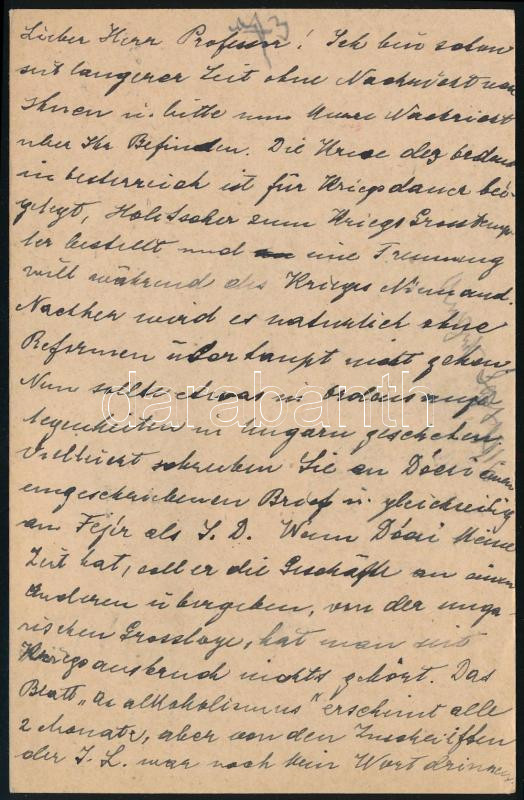 Lieber Herr Professor! Ich bin schon
seit langerer Zeit ohne Nachricht von
Ihnen u. bitte um Nachricht
uber Ihr Befinden. Die Krise des Ordens
in Oesterreich ist für Kriegsdauer bei-
gelegt, Holitscher zum Kriegs Grosstemp-
ler bestellt und eine Trennung
will während des Krieges Niemand.
Nachher wird es naturlich ohne
Reformen überhaupt nicht gehen
Nun sollte etwas in Ordens ange-
legenheiten in Ungarn geschehen.
Vielleicht schreiben Sie an Dóczi einen
eingeschriebenen Brief u. gleichzeitig
an Fejér als I. D. Wenn Dóczi keine
Zeit hat, soll er die Geschäfte an einen
Anderen übergeben, von der unga-
rischen Grossloge, hat man seit
Kriegsausbruch nichts gehört. Das
Blatt „Az alkoholismus" erscheint alle
2 Monate, aber von den Inschriften
der I. L. war noch kein Wort drinnen.
darabanth